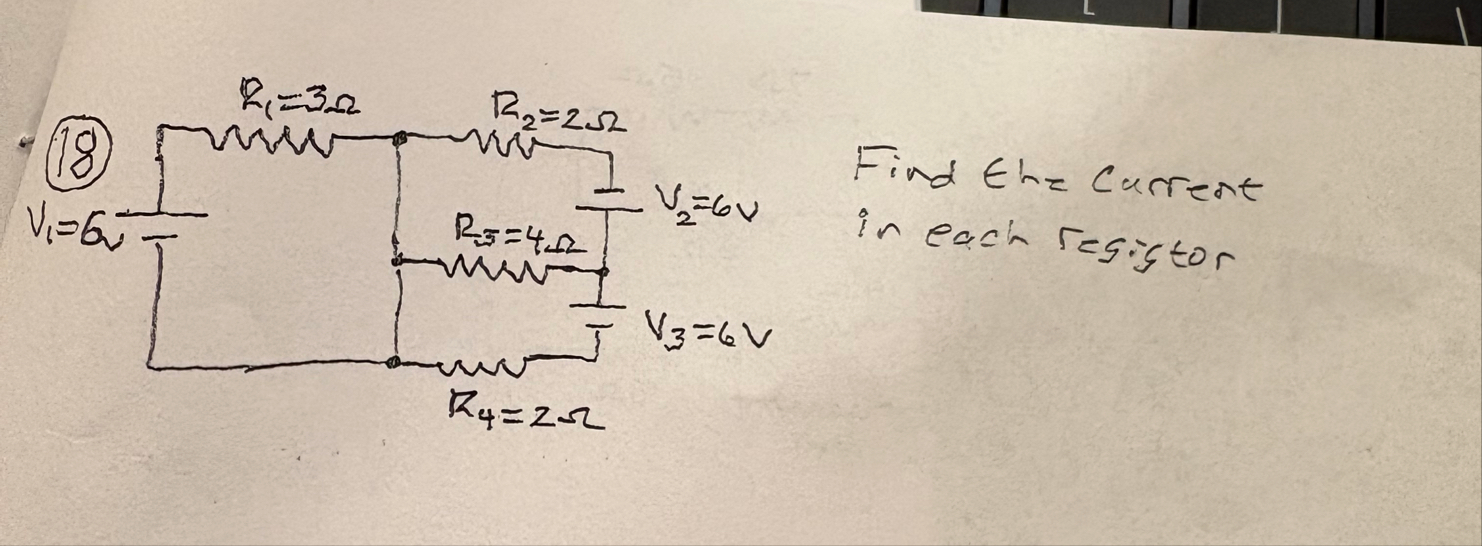 R₁=3Ω
R₂=2Ω
18
V₁=6v
V₂=6V
R₃=4Ω
V₃=6V
R₄=2Ω
Find the current
in each resistor